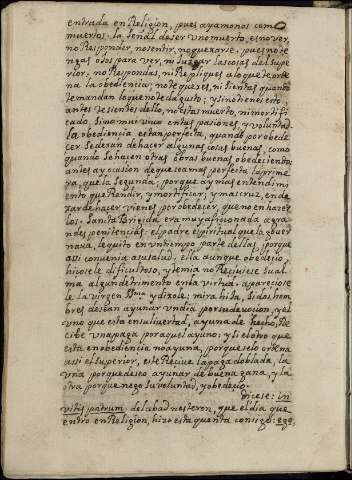 entrada en Religion, pues ayamonos como
muertos. la señal de ser Uno muerto, es no ver,
no Responder, no sentir, no quexarse. pues note
ngas ojos para ver, ni Juzgar las cosas del Supe
rior, no Respondas, ni Repliques a lo que te orde
na la obediencia; note quexes, ni Sientas quando
te mandan lo que no te da gusto; y si no tienes esto
antes te sientes dello, no estas muerto, ni mortifi
cado, Sino mui vivo en tus pasiones, y voluntad
La obediencia es tan perfecta, quando por obede
cer Se dexan de hacer algunas cosas buenas, como
quando Se hacen otras obras buenas obedeciento:
antes ay ocasion de que sea mas perfecta la prime
ra, que la Segunda, porque ay mas entendimi
ento que Rendir, y mortificar, y mas cruz en de
xar de hacer vienes por obedecer, que no en hazer
los. Santa Brigida era muy aficionada a gra
ndes penitencias. el padre espiritual que la gover
nava, le quito en un tiempo parte dellas, porque
assi convenia a su salud. ella aunque obedecio,
hizosele dificultoso, y temia no Reciviese Su al
ma algun detrimento en la virtud. apareciose
le la virgen SSma y dixole: mira hija, Si dos hom
bres desean ayunar un dia por su devocion, y el
uno que esta en su livertad, ayuna de hecho, Re
cibe una paga por aquel ayuno: y Si el otro que
esta en obediencia no ayuna, porque selo ordena
assi el Superior, este Recive la paga doblada, la
una porque deseo ayunar de buena gana, y la
otra porque nego Su voluntad, y obedecio.
Dicese: in
vitis patrum del abad nesteron, que el dia que
entro en Religion, hizo esta quenta consigo: ego,